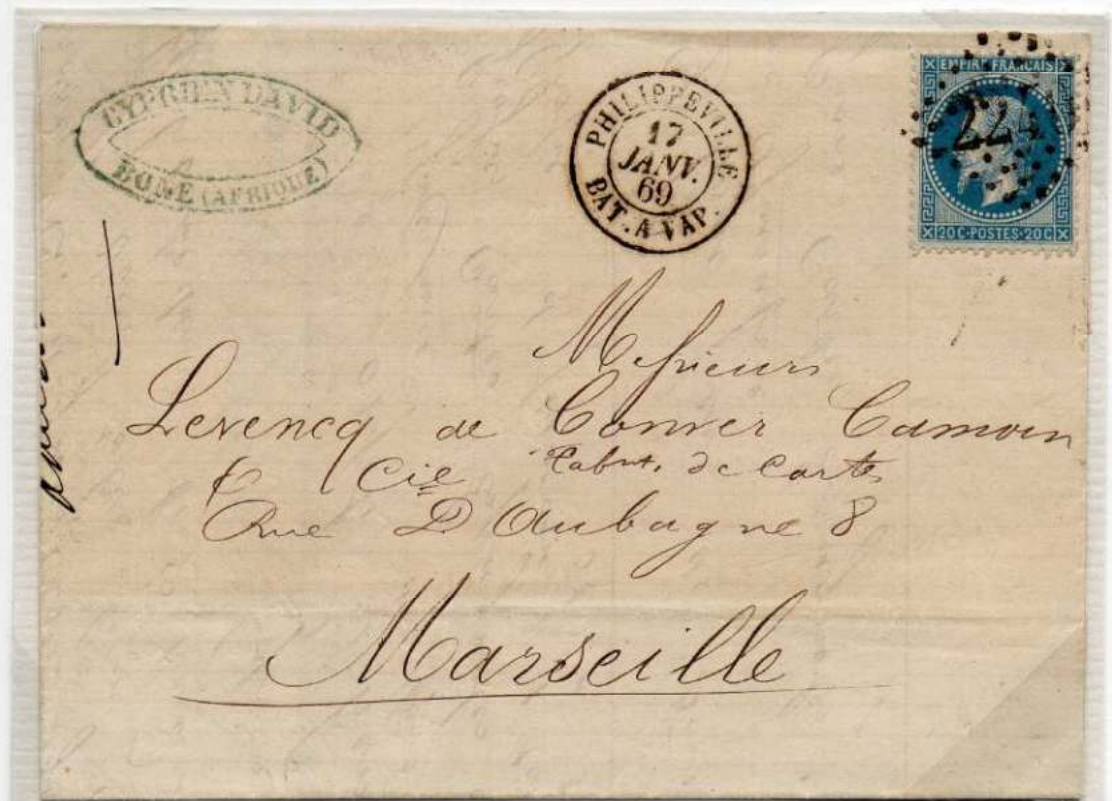 CYPRIEN DAVID
BONE (AFRIQUE)
PHILIPPEVILLE
17
JANV.
69
BAT. A VAP.
EMPIRE FRANCAIS
224
20 C·POSTES·20 C
Messieurs
Levencq de Conver Camoin
& Cie Fabnt. de Cartes
Rue D'Aubagne 8
Marseille